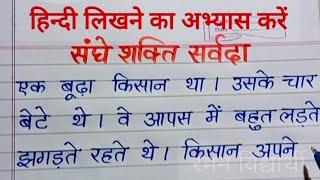 हिन्दी लिखने का अभ्यास करें
संघे शक्ति सर्वदा
एक बूढ़ा किसान था। उसके चार
बेटे थे। वे आपस में बहुत लड़ते
झगड़ते रहते थे। किसान अपने